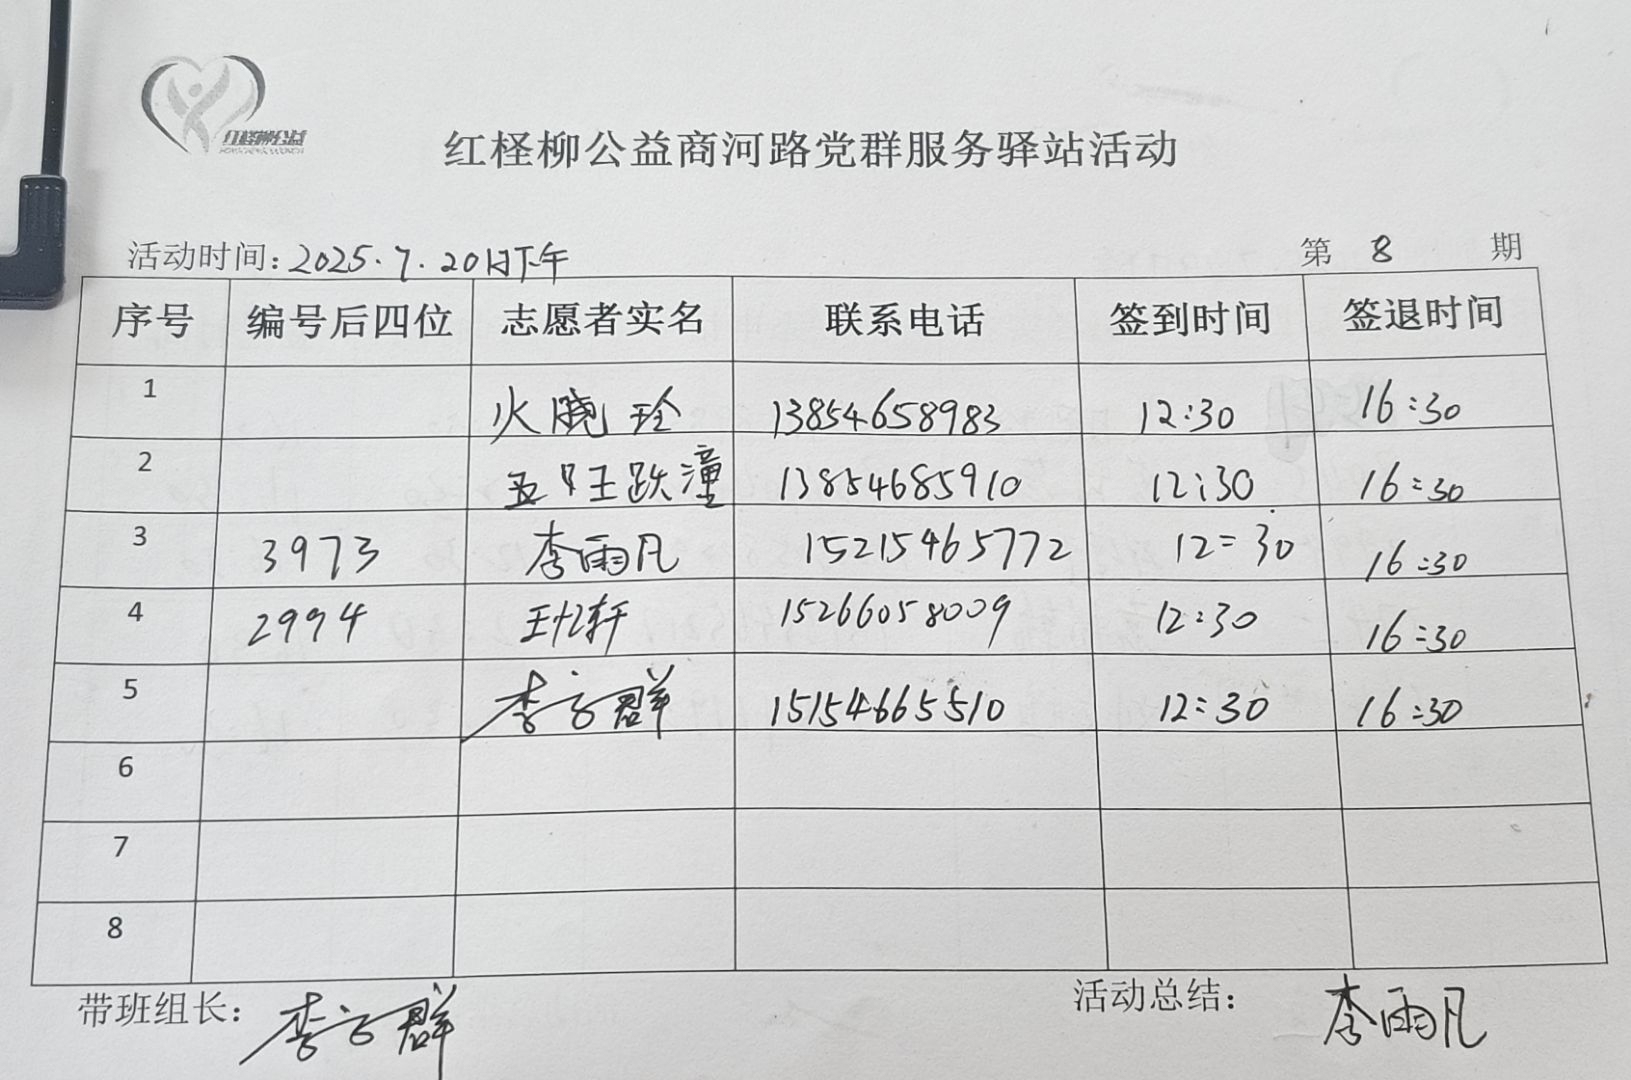 红柽柳公益
红柽柳公益商河路党群服务驿站活动
活动时间: 2025.7.20日下午 第 8 期
序号 编号后四位 志愿者实名 联系电话 签到时间 签退时间
1 火晓玲 13854658983 12:30 16:30
2 王跃潼 13854685910 12:30 16:30
3 3973 李雨凡 15215465772 12:30 16:30
4 2994 轩 15266058009 12:30 16:30
5 李子群 15154665510 12:30 16:30
6
7
8
带班组长: 李子群 活动总结: 李雨凡